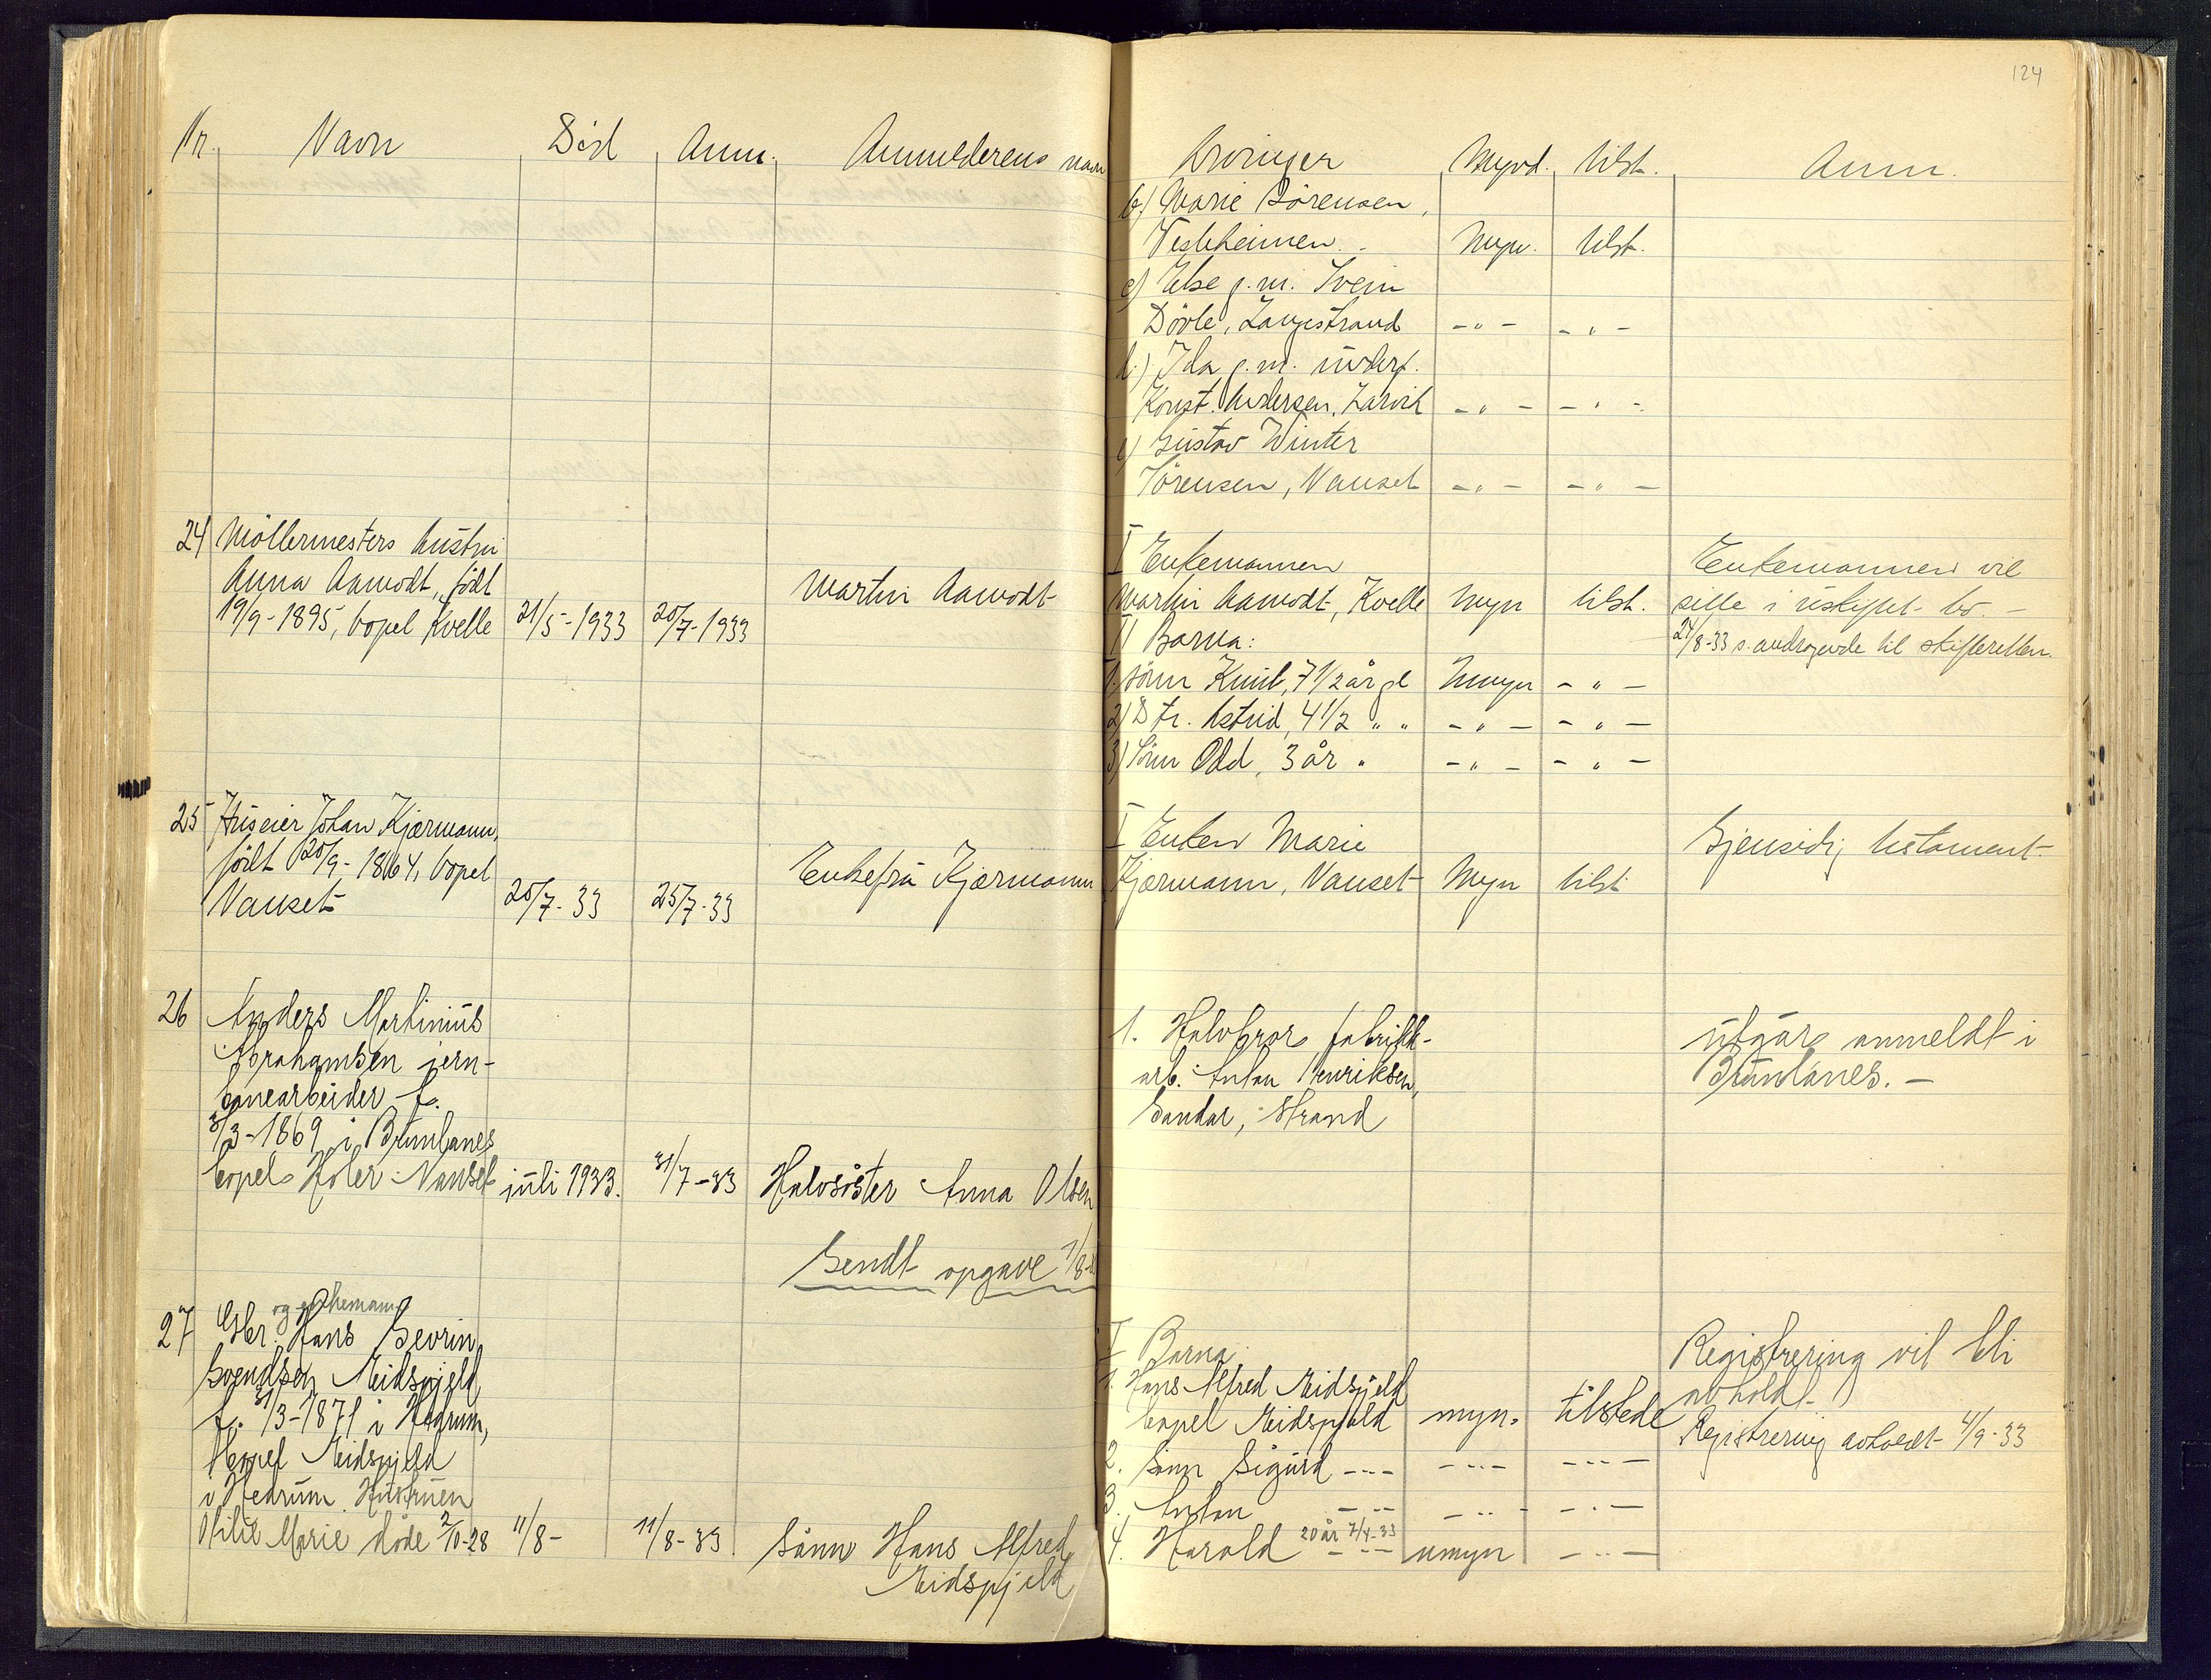 124
Nr. Navn Död Anm. Anmelderens navn
24 Möllermesters hustru
Anna Aamodt, födt
19/9-1895, bopel Kvelle 21/5-1933 20/7-1933
Martin Aamodt
25 Huseier Johan Kjærmann,
födt 20/9-1864, bopel
Nauset 20/7-33 25/7-33
Enkefru Kjærmann
26 Anders Martinius
Abrahamsen jern-
banearbeider f.
3/3-1869 i Brunlanes
bopel Holer Nauset juli 1933. 31/7-33 Halvsöster Anna Olsen
Sendt opgave 1/8
og enkemann
27 Gbr. Hans Sevrin
Svendsen Meidsfjeld
f. 31/3-1871 i Hedrum,
bopel Meidsfjeld
i Hedrum. Hustruen
Marie döde 2/10-28 11/8- 11/8-33 Sönn Hans Alfred
Meidsfjeld
Arvinger Mynd. tilst. Anm.
b) Marie Sörensen,
Vestheimen. Myn. tilst.
c) Else g.m. Svein
Dövle, Langestrand -"- -"-
d) Ida g.m.
Konst. Andersen, Larvik -"- -"-
e) Gustav Winter
Sörensen, Nauset -"- -"-
I Enkemannen
Martin Aamodt, Kvelle Myn tilst.
II Barna:
1. Sönn Knut, 7 1/2 år gl Umyn -"-
2) Dtr. Astrid, 4 1/2 " " -"- -"-
3) Sönn Odd, 3 år " -"- -"-
Enkemannen vil
sitte i uskiftet bo. -
24/8-33 s. andragende til skifteretten.
I Enken Marie
Kjærmann, Nauset Myn tilst
Gjensidig testament.
1. Halvbror fabrikk-
arb. Anton Henriksen,
Sandar, Strand
utgår anmeldt i
Brunlanes. -
I Barna
1. Hans Alfred Meidsfjeld
bopel Meidsfjeld myn. tilstede
2. Sönn Sigurd -"- -"- -"-
3. Anton -"- -"- -"-
4. Harold 20 år 7/4-33 -"- umyn -"-
Registrering vil bli
avholdt
Registrering avholdt 4/9-33